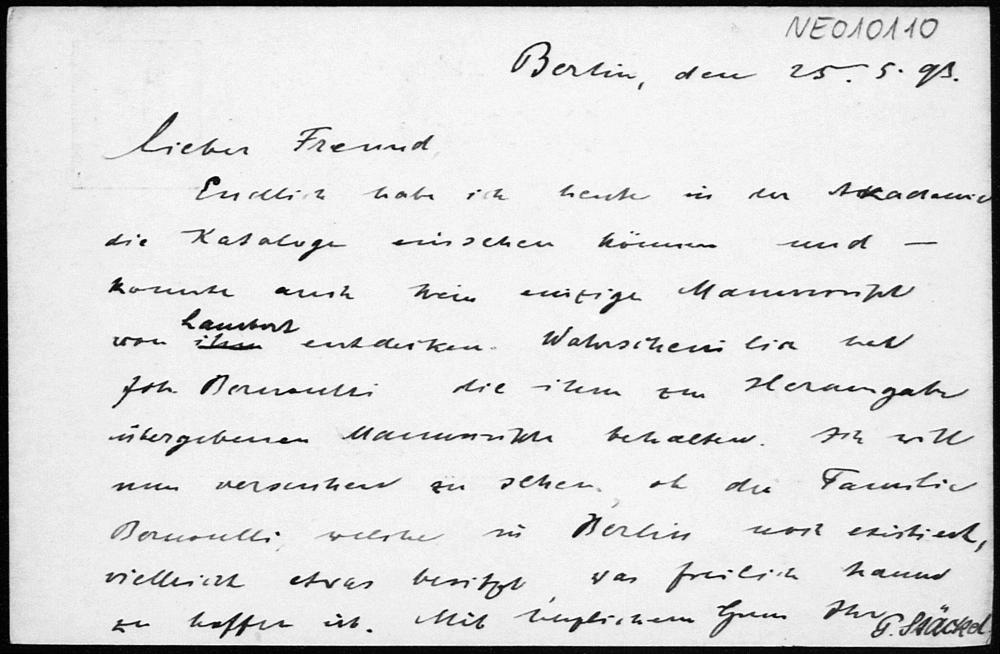 NE010110
Berlin, den 25. 5. 93.
Lieber Freund,
Endlich habe ich heute in der Akademie
die Kataloge einsehen können und —
konnte auch kein einzige Manuscript
von Lambert entdecken. Wahrscheinlich hat
Joh Bernoulli die ihm zur Herausgabe
übergebenen Manuscripte behalten. Ich will
nun versuchen zu sehen, ob die Familie
Bernoulli, welche in Berlin noch existiert,
vielleicht etwas besitzt, was freilich kaum
zu hoffen ist. Mit herzlichem Gruss Ihr P. Stäckel